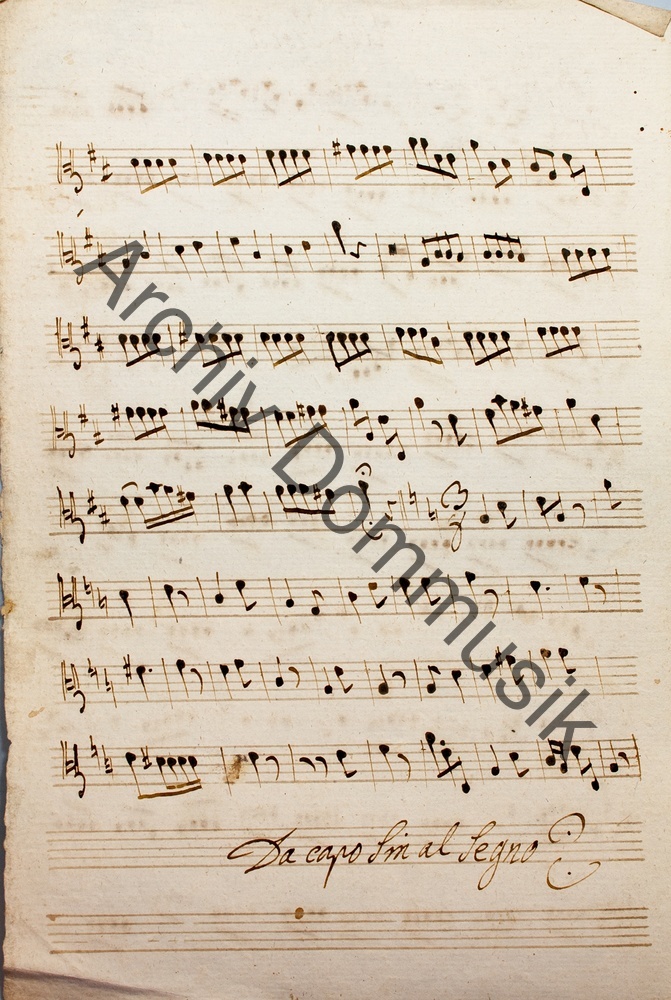 Archiv Dommusik
Da capo Sin al Segno